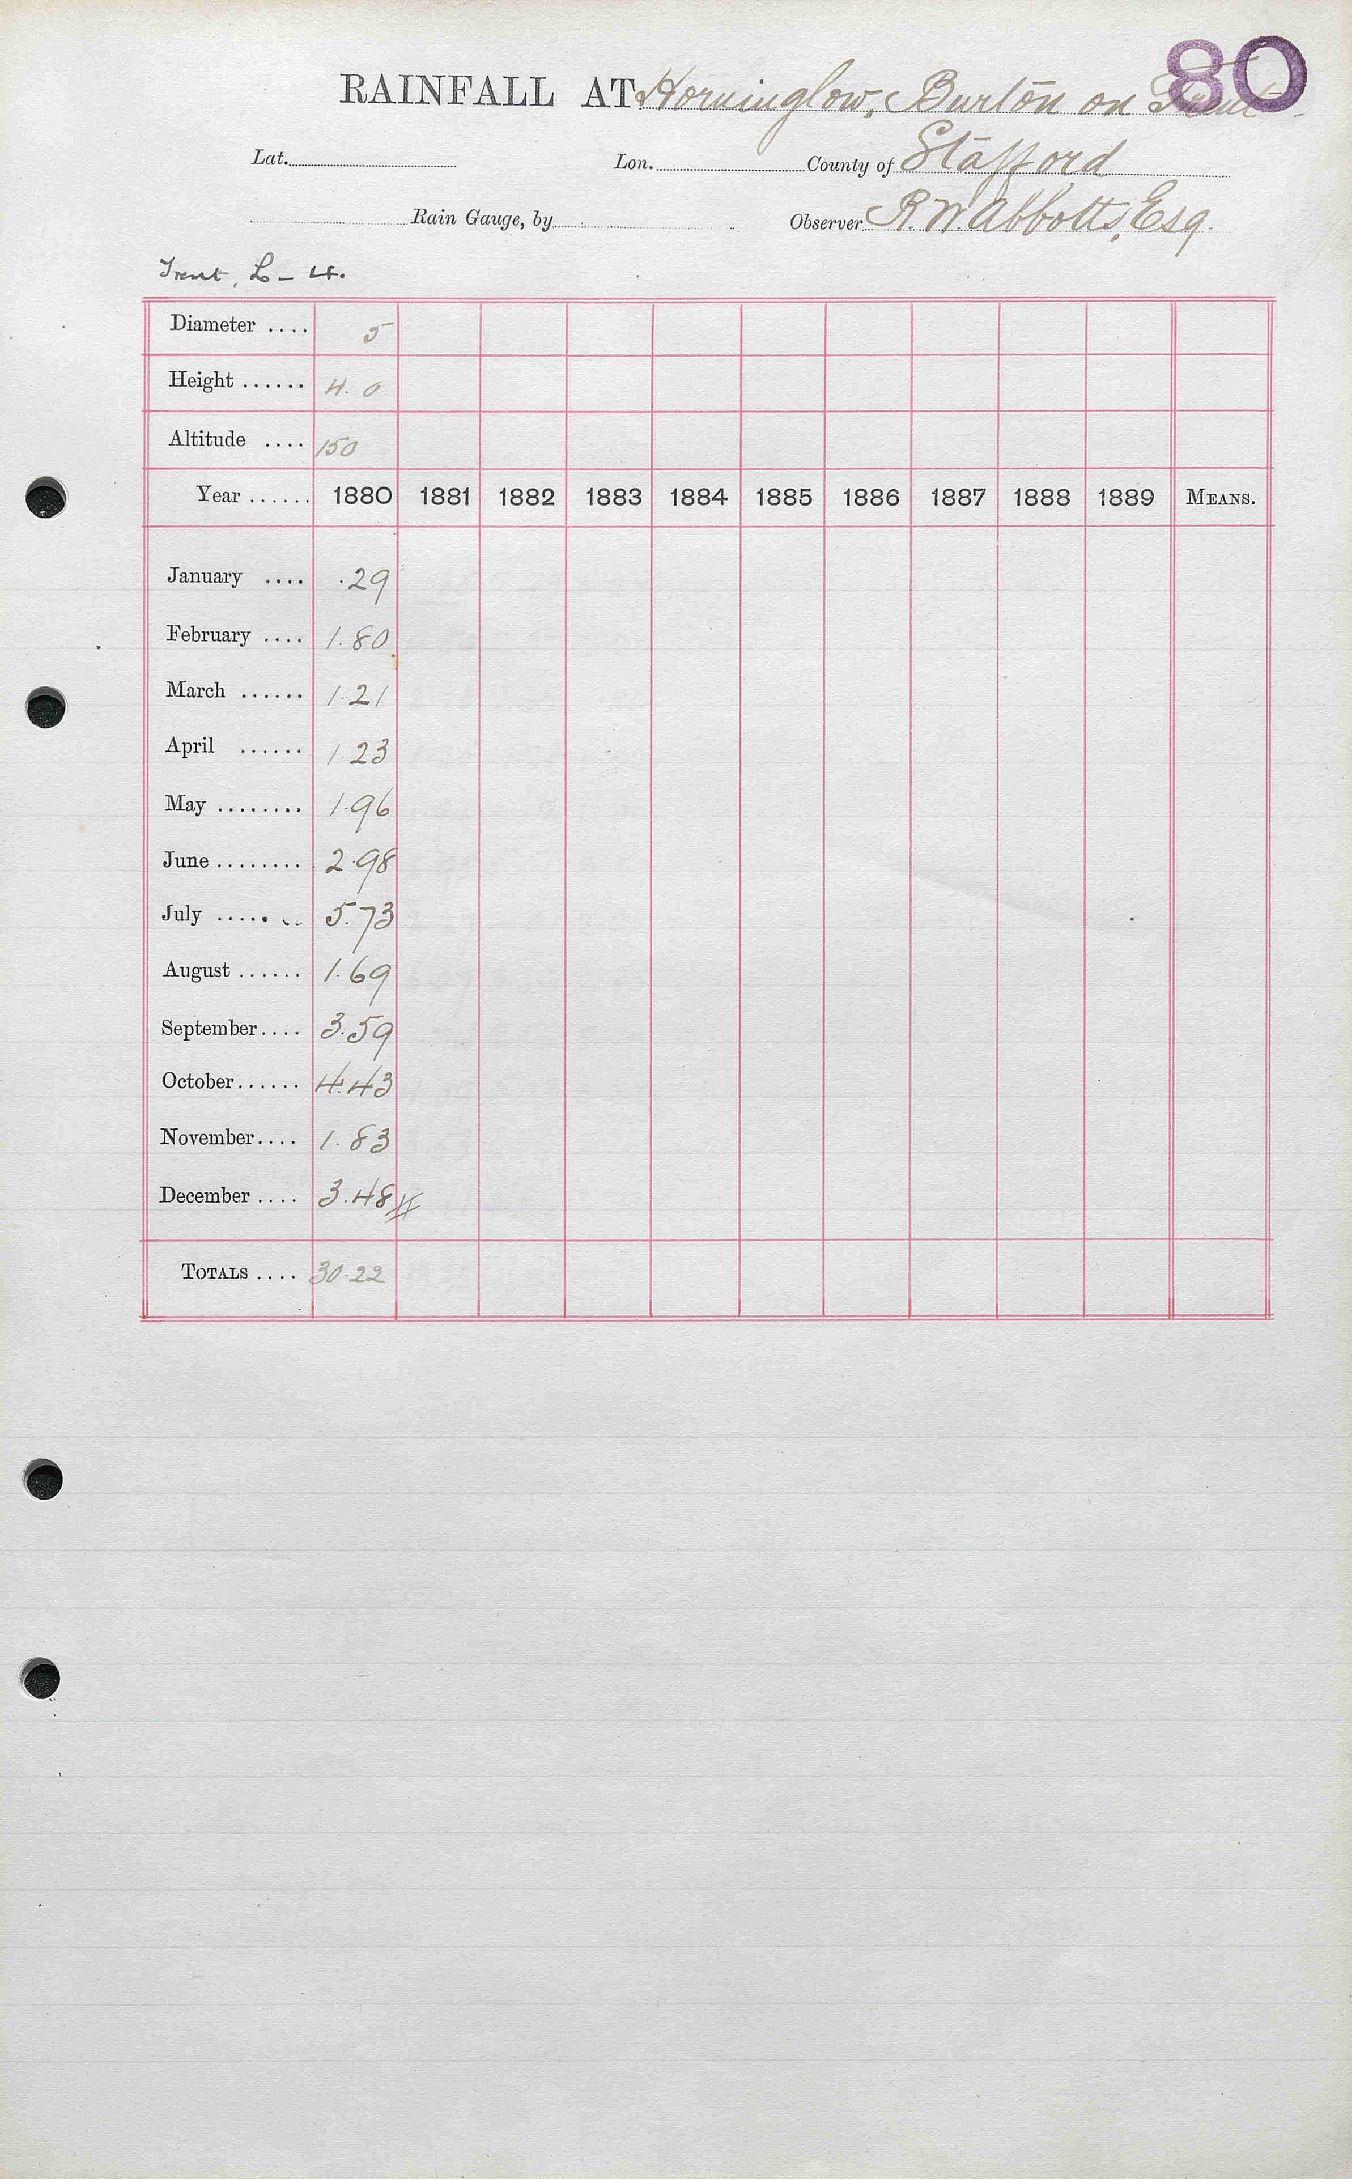 80
RAINFALL AT Horninglow, Burton on Trent
Lat. Lon. County of Stafford
Rain Gauge, by Observer R.W. Abbotts, Esq.
Trent, L - 4.
Diameter .... 5
Height ...... 4. 0
Altitude .... 150
Year ...... 1880 1881 1882 1883 1884 1885 1886 1887 1888 1889 MEANS.
January .... .29
February .... 1.80
March ...... 1.21
April ...... 1.23
May ........ 1.96
June ........ 2.98
July ........ 5.73
August ...... 1.69
September.... 3.59
October...... 4.43
November.... 1.83
December .... 3.48
TOTALS .... 30.22